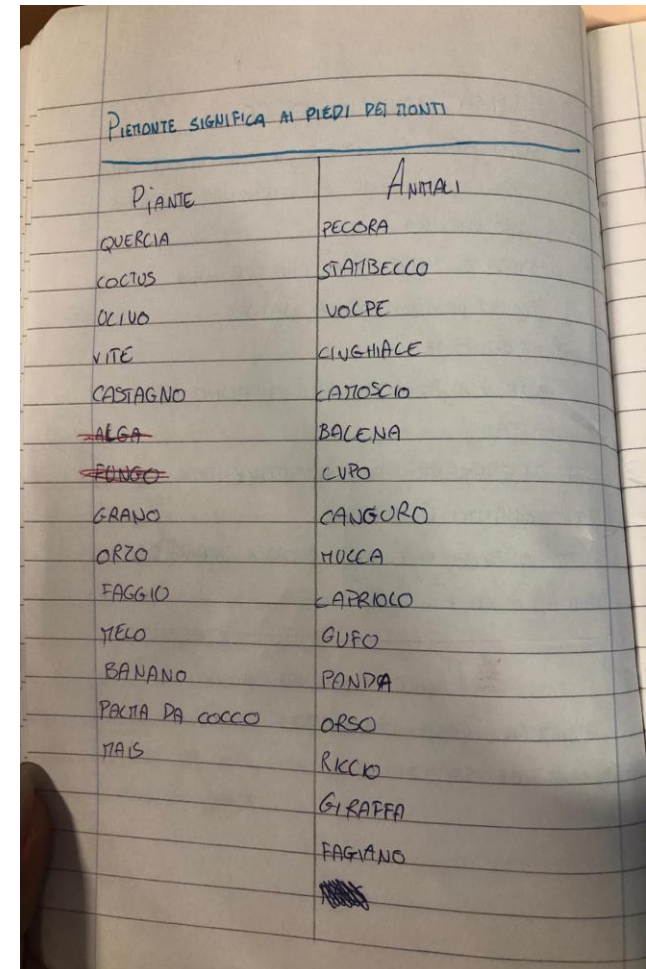 PIEMONTE SIGNIFICA AI PIEDI DEI MONTI
PIANTE
ANIMALI
QUERCIA
PECORA
COCTUS
STAMBECCO
ULIVO
VOLPE
VITE
CINGHIALE
CASTAGNO
CAMOSCIO
ALGA
BALENA
FUNGO
LUPO
GRANO
CANGURO
ORZO
MUCCA
FAGGIO
CAPRIOLO
MELO
GUFO
BANANO
PANDA
PALMA DA COCCO
ORSO
MAIS
RICCIO
GIRAFFA
FAGIANO